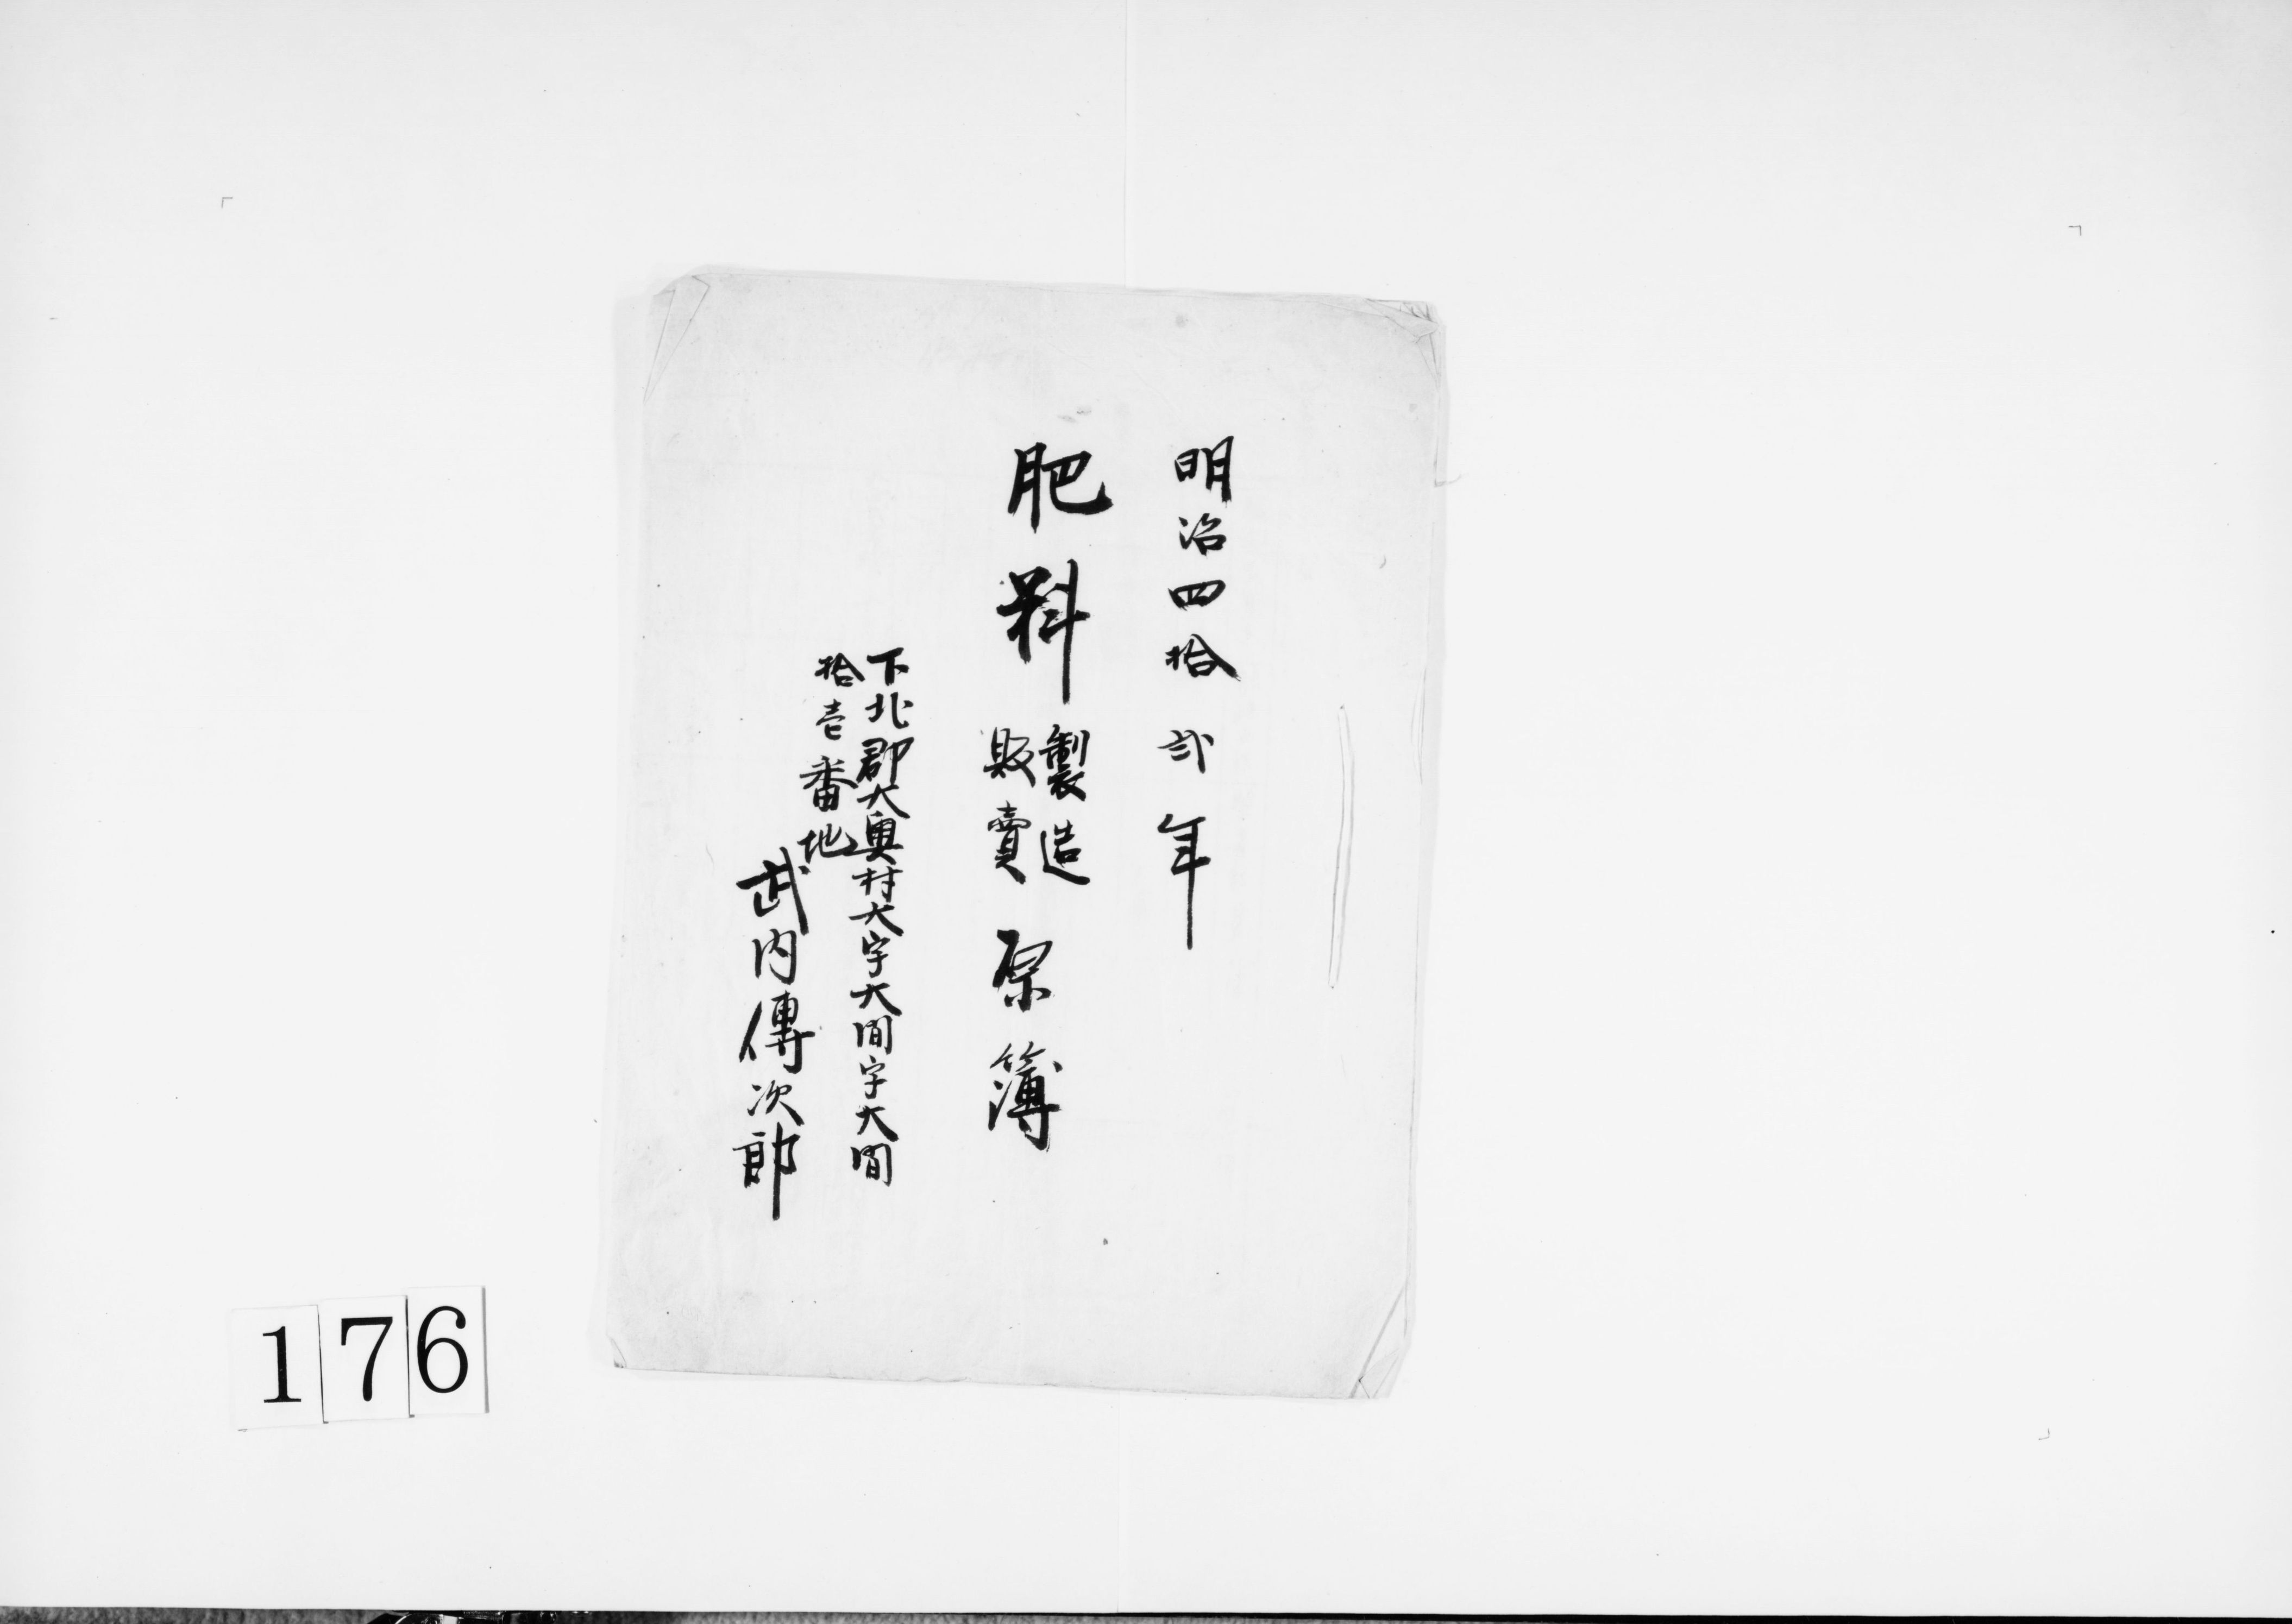 明治四拾弐年
肥料製造販賣原簿
下北郡大奥村大字大間字大間
拾壱番地
武内傳次郎
176